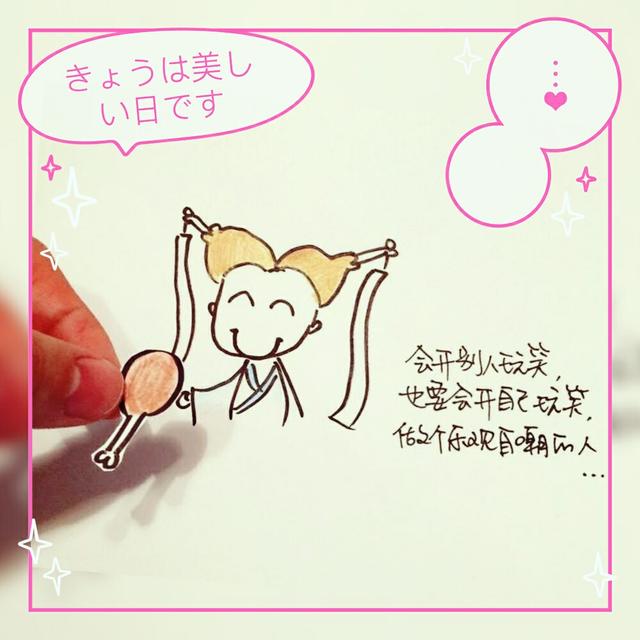 きょうは美し
い日です
会开别人玩笑,
也要会开自己玩笑,
做个乐观自嘲的人
...